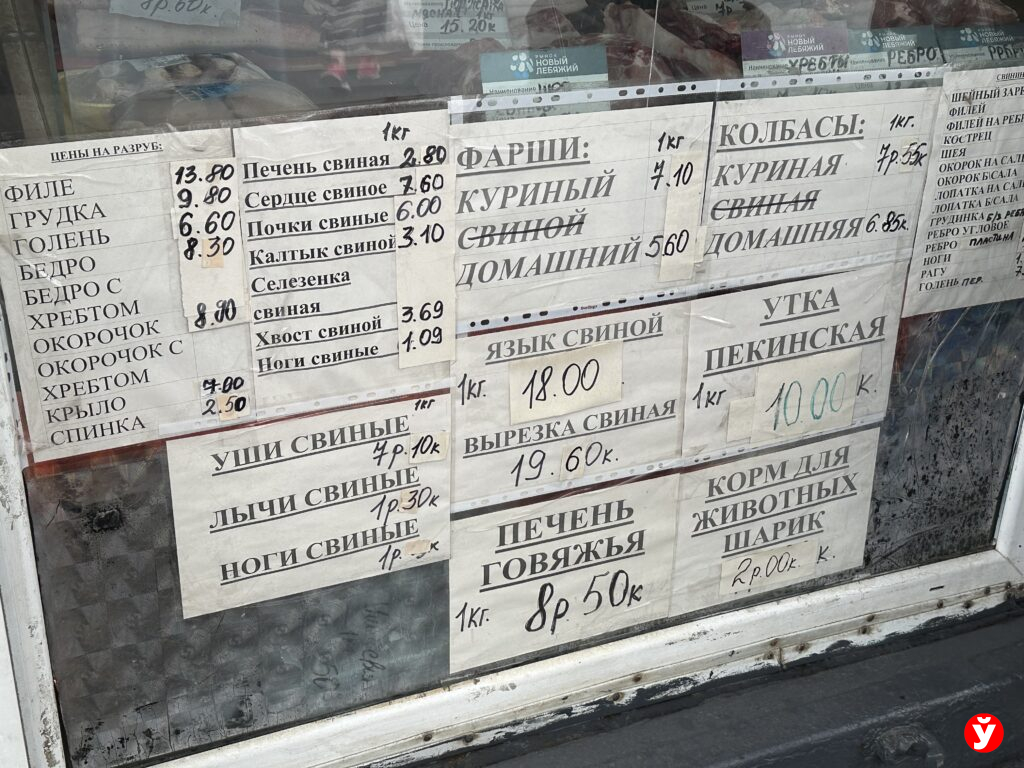 8р.60к
15.20к
РЫНОК
НОВЫЙ
ЛЕБЯЖИЙ
Наименование
РЫНОК
НОВЫЙ
ЛЕБЯЖИЙ
ХРЕБТЫ
НОВЫЙ
ЛЕБЯЖИЙ
РЕБРО
НОВЫЙ
ЛЕБЯЖИЙ
ЦЕНЫ НА РАЗРУБ:
ФИЛЕ 13.80
ГРУДКА 9.80
ГОЛЕНЬ 6.60
БЕДРО 8.30
БЕДРО С
ХРЕБТОМ
ОКОРОЧОК 8.90
ОКОРОЧОК С
ХРЕБТОМ
КРЫЛО 7.00
СПИНКА 2.50
1кг
Печень свиная 2.80
Сердце свиное 7.60
Почки свиные 6.00
Калтык свиной 3.10
Селезенка
свиная
Хвост свиной 3.69
Ноги свиные 1.09
ФАРШИ: 1кг
КУРИНЫЙ 7.10
СВИНОЙ
ДОМАШНИЙ 5.60
КОЛБАСЫ: 1кг.
КУРИНАЯ 7р.55к
СВИНАЯ
ДОМАШНЯЯ 6.85к.
СВИНИ
ШЕЙНЫЙ ЗАР
ФИЛЕЙ
ФИЛЕЙ НА РЕБ
КОСТРЕЦ
ШЕЯ
ОКОРОК НА САЛ
ОКОРОК Б/САЛА
ЛОПАТКА НА САЛ
ЛОПАТКА Б/САЛА
ГРУДИНКА Б/З РЕБ
РЕБРО УГЛОВОЕ
РЕБРО ПЛАСТИНА
НОГИ
РАГУ
ГОЛЕНЬ ПЕР.
1кг
УШИ СВИНЫЕ
7р.10к
ЛЫЧИ СВИНЫЕ
1р.30к
НОГИ СВИНЫЕ
1р.
ЯЗЫК СВИНОЙ
1кг. 18.00
ВЫРЕЗКА СВИНАЯ
19.60к.
УТКА
ПЕКИНСКАЯ
1кг 10.00 К.
ПЕЧЕНЬ
ГОВЯЖЬЯ
1кг. 8р 50к
КОРМ ДЛЯ
ЖИВОТНЫХ
ШАРИК
2р.00к. К.
Ў